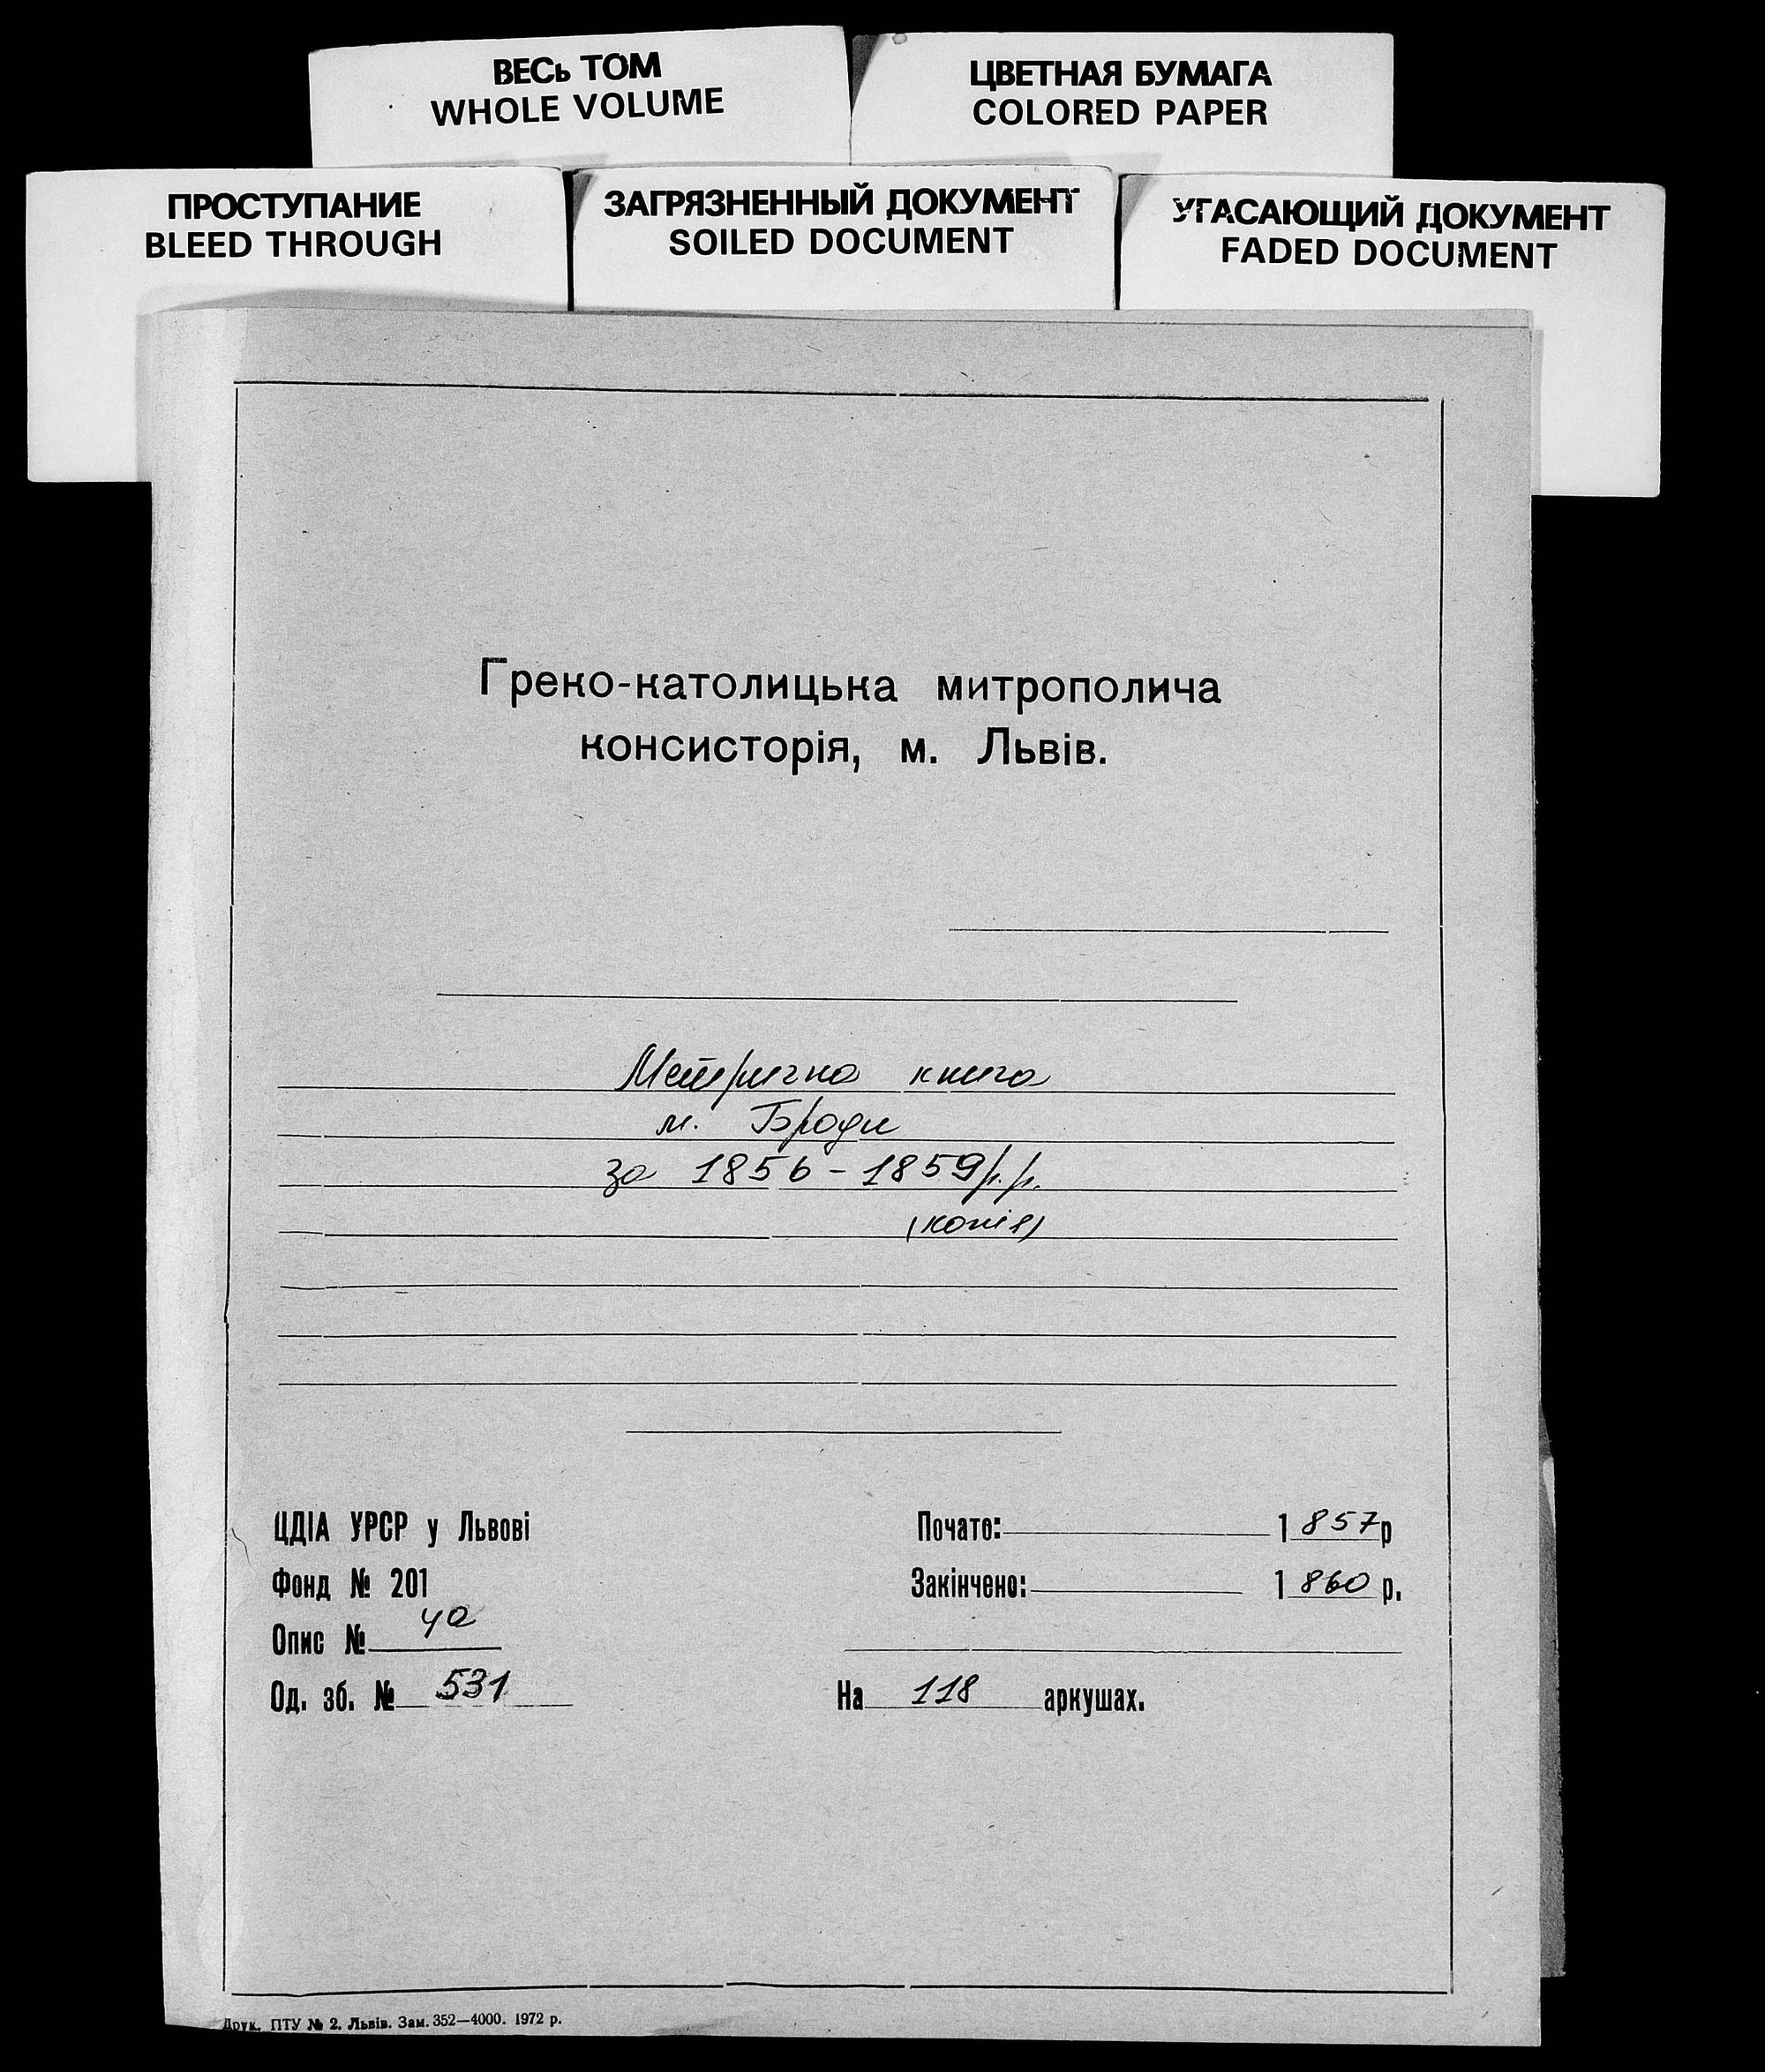 ВЕСЬ ТОМ
WHOLE VOLUME
ЦВЕТНАЯ БУМАГА
COLORED PAPER
ПРОСТУПАНИЕ
BLEED THROUGH
ЗАГРЯЗНЕННЫЙ ДОКУМЕНТ
SOILED DOCUMENT
УГАСАЮЩИЙ ДОКУМЕНТ
FADED DOCUMENT
Греко-католицька митрополича
консисторія, м. Львів.
Метрична книга
м. Броди
за 1856 - 1859 р.р.
(копія)
ЦДІА УРСР у Львові
Фонд № 201
Опис № 4а
Од. зб. № 531
Почато: 1857 р
Закінчено: 1860 р.
На 118 аркушах.
Друк. ПТУ № 2. Львів. Зам. 352—4000. 1972 р.